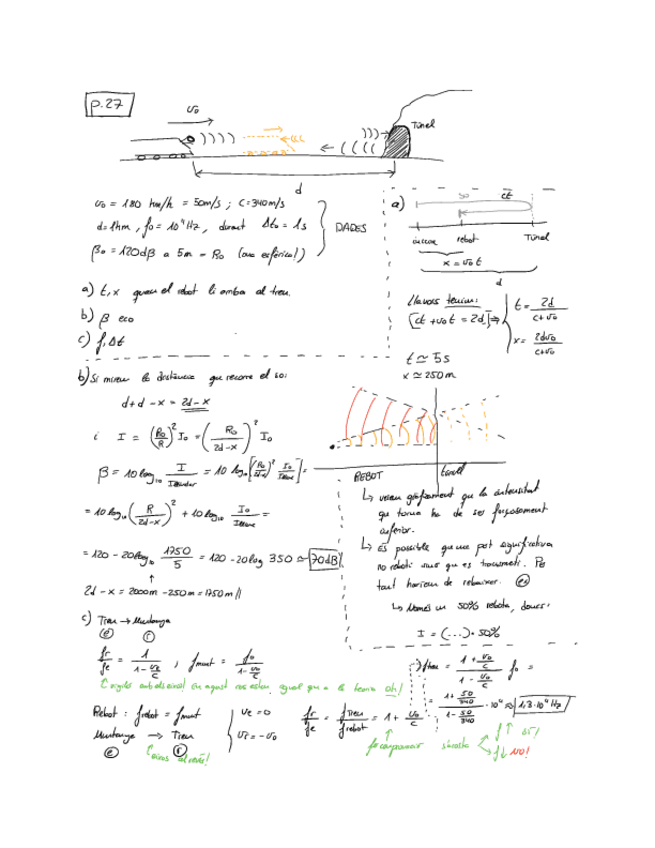 p.27
v₀
Túnel
d
v₀ = 180 km/h = 50m/s ; C=340m/s
d=1km, f₀ = 10⁴Hz, durant Δt₀ = 1s
β₀ = 120dB a 5m = R₀ (ona esférica!)
DADES
a) t, x quan el rebot li arriba al tren.
b) β eco
c) f, Δt
a)
ct
rebot
Túnel
x = v₀t
d
Llavors tenim:
[ct + v₀t = 2d] ⇒
t = 2d / (c+v₀)
x = 2dv₀ / (c+v₀)
t ≃ 5s
x ≃ 250m
b) Si mirem la distància que recorre el so:
d+d-x = 2d-x
i I = (R₀/R)² I₀ = (R₀/(2d-x))² I₀
β = 10 log₁₀ I/I = 10 log₁₀[(R₀/(2d-x))² I₀/I] =
= 10 log₁₀ (R/(2d-x))² + 10 log₁₀ I₀/I =
= 120 - 20 log₁₀ 1750/5 = 120 - 20 log 350 ≃ 70dB
2d - x = 2000m - 250m = 1750m //
REBOT
túnel
↳ veiem gràficament que la intensitat
que torna ha de ser forçosament
inferior.
↳ És possible que una part significativa
no reboti sinó que es transmeti. Per
tant hauríem de rebaixar. ex
↳ Només un 50% rebota, doncs:
I = (...)·50%
c) Tren → Muntanya
e r
fr/fe = 1/(1 - ve/c) ; fmunt = f₀/(1 - v₀/c)
igual que a la teoria oh!
Rebot: frebot = fmunt
Muntanya → Tren
e r
al revés!
ve = 0
vr = -v₀
fr/fe = fTren/frebot = 1 + v₀/c
ftren = (1 + v₀/c)/(1 - v₀/c) f₀ =
= (1 + 50/340)/(1 - 50/340) · 10⁴ ≃ 1,3·10⁴Hz
s'acosta
f↑ SÍ!
f↓ NO!